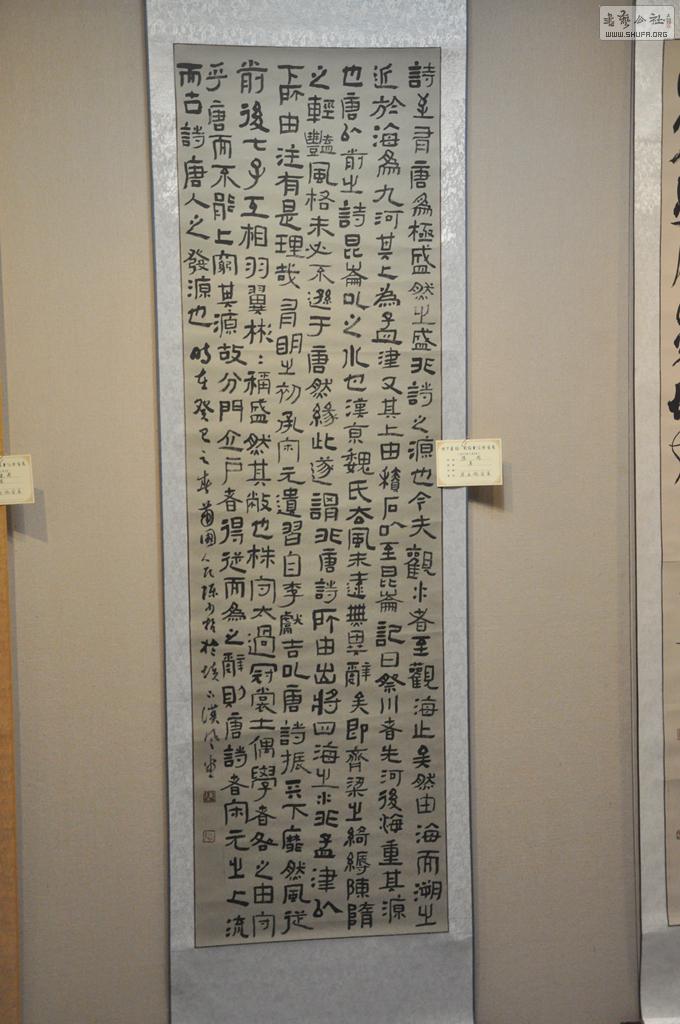 詩至有唐爲極盛然之盛非詩之源也今夫觀水者至觀海止矣然由海而溯之
近於海爲九河其上為孟津又其上由積石以至昆崙記曰祭川者先河後海重其源
也唐以前之詩昆崙以之水也漢京魏氏去風未遠無異辭矣即齊梁之綺縟陳隋
之輕豔風格未必不遜于唐然緣此遂謂非唐詩所由出將四海之水非孟津以
下所由注有是理哉有明之初承宋元遺習自李獻吉以唐詩振天下靡然風從
前後七子互相羽翼彬：稱盛然其敝也株守太過冠裳土偶學者咎之由守
乎唐而不能上窮其源故分門立户者得從而為之辭則唐詩者宋元之上流
而古詩唐人之發源也 時在癸巳之春莆國人氏陳
WWW.SHUFA.ORG